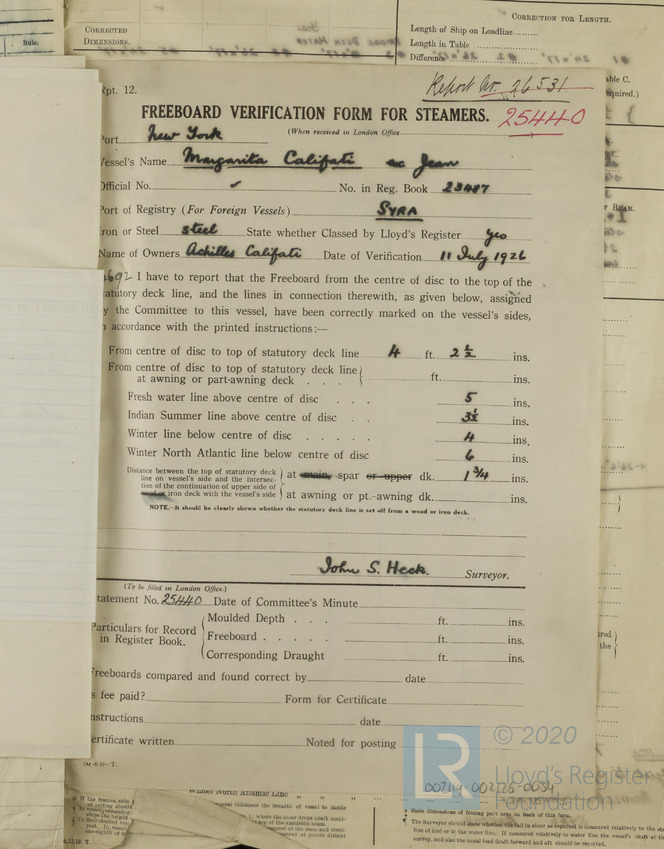 CORRECTED
DIMENSIONS.
CORRECTION FOR LENGTH.
Length of Ship on Loadline
Length in Table
Difference
Rule.
ble C.
quired.)
Rpt. 12.
Report No. 26531
FREEBOARD VERIFICATION FORM FOR STEAMERS. 25440
Port New York (When received in London Office
Vessel's Name Margarita Califati ex Jean
Official No. ✓ No. in Reg. Book 23487
Port of Registry (For Foreign Vessels) SYRA
Iron or Steel steel State whether Classed by Lloyd's Register yes
Name of Owners Achilles Califati Date of Verification 11 July 1926
I have to report that the Freeboard from the centre of disc to the top of the
tatutory deck line, and the lines in connection therewith, as given below, assigned
y the Committee to this vessel, have been correctly marked on the vessel's sides,
accordance with the printed instructions:—
From centre of disc to top of statutory deck line 4 ft. 2½ ins.
From centre of disc to top of statutory deck line
at awning or part-awning deck . . . ft. ins.
Fresh water line above centre of disc . . . 5 ins.
Indian Summer line above centre of disc . . 3½ ins.
Winter line below centre of disc . . . . . 4 ins.
Winter North Atlantic line below centre of disc 6 ins.
Distance between the top of statutory deck
line on vessel's side and the intersec-
tion of the continuation of upper side of
wood or iron deck with the vessel's side
at main, spar or upper dk. 1 3/4 ins.
at awning or pt.-awning dk. ins.
NOTE.—It should be clearly shown whether the statutory deck line is set off from a wood or iron deck.
John S. Heck. Surveyor.
(To be filled in London Office.)
tatement No. 25440 Date of Committee's Minute
Particulars for Record
in Register Book.
Moulded Depth . . . ft. ins.
Freeboard . . . . . ft. ins.
Corresponding Draught ft. ins.
Freeboards compared and found correct by date
s fee paid? Form for Certificate
nstructions date
ertificate written Noted for posting
© 2020
Lloyd's Register
Foundation
LR
002714-002726-0034
Winter North Atlantic Line
State dimensions of freeing port area on back of this form.